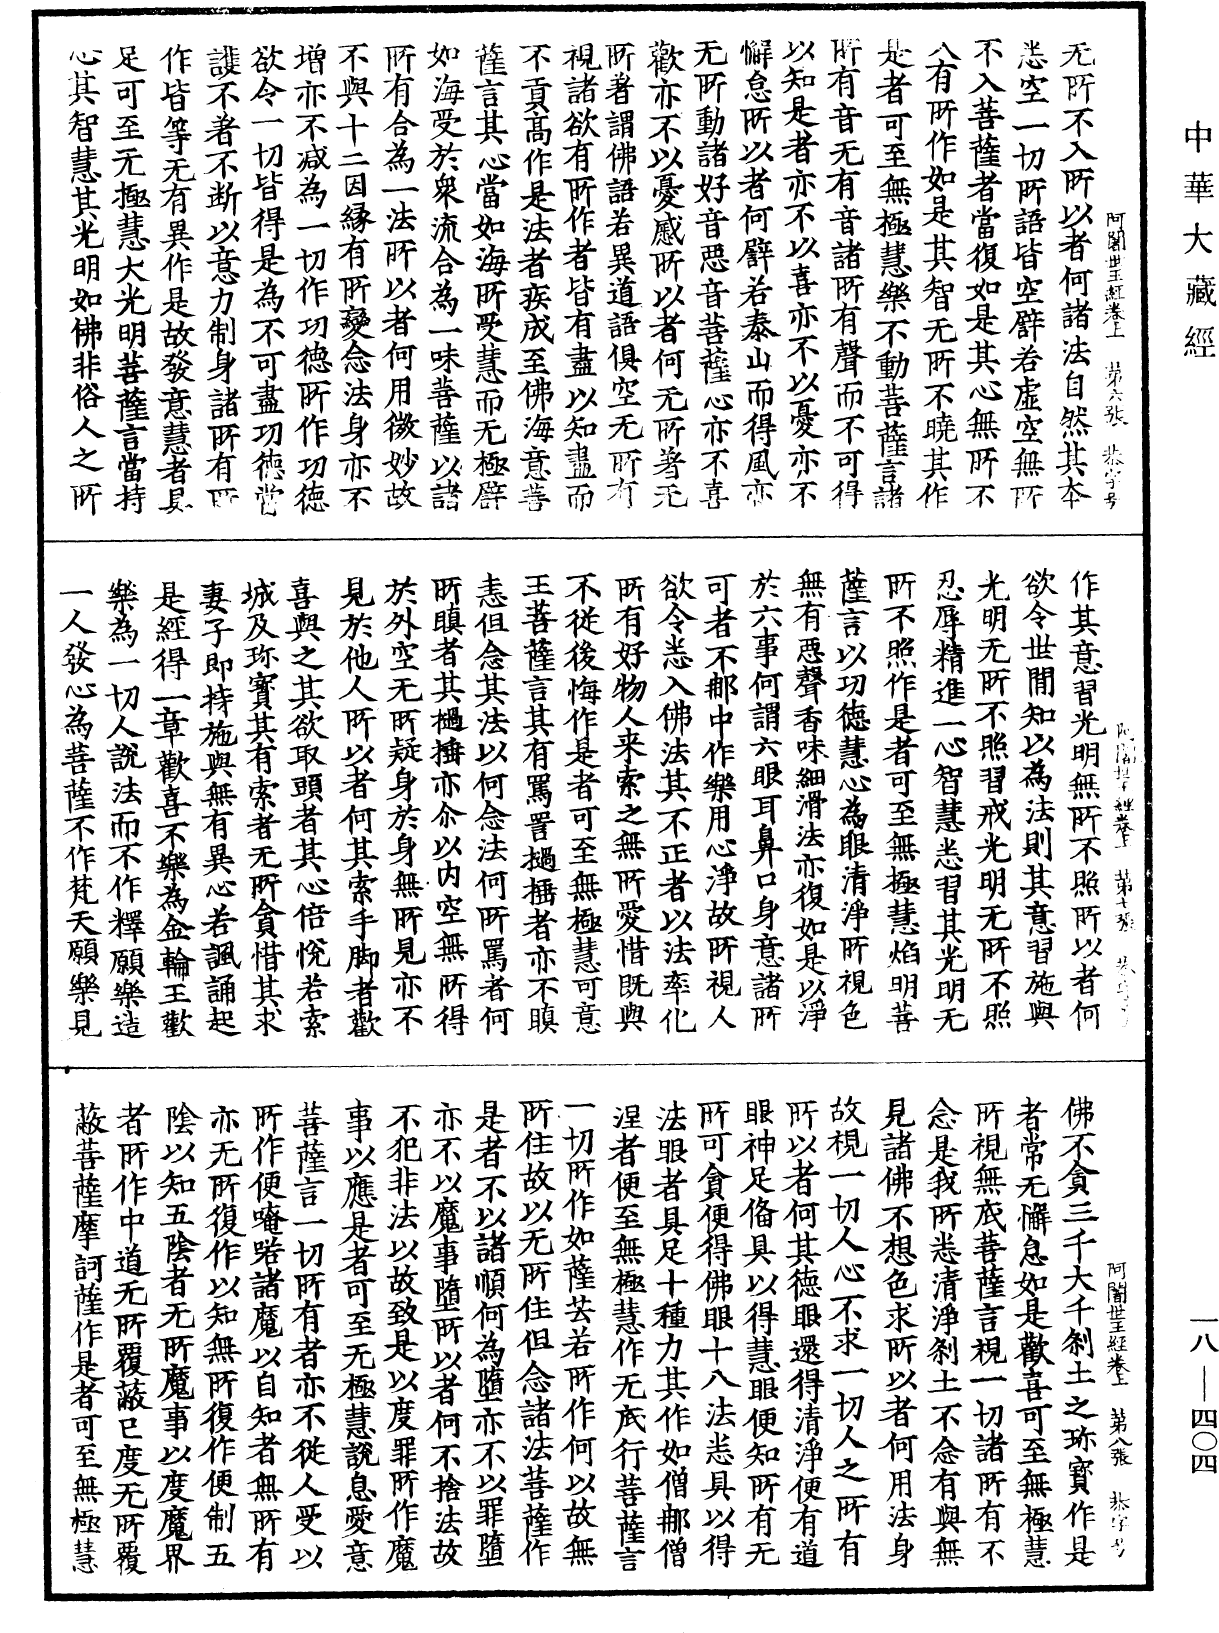 中華大藏經
阿闍世王經卷上　第六張　恭字号
无所不入所以者何諸法自然其本
悉空一切所語皆空譬若虛空無所
不入菩薩者當復如是其心無所不
入有所作如是其智无所不曉其作
是者可至無極慧樂不動菩薩言諸
所有音无有音諸所有聲而不可得
以知是者亦不以喜亦不以憂亦不
懈怠所以者何譬若泰山而得風亦
无所動諸好音惡音菩薩心亦不喜
歡亦不以憂慼所以者何无所著无
所著謂佛語若異道語俱空无所有
視諸欲有所作者皆有盡以知盡而
不貢高作是法者疾成至佛海意菩
薩言其心當如海所受慧而无極譬
如海受於衆流合為一味菩薩以諸
所有合為一法所以者何用微妙故
不與十二因緣有所變念法身亦不
增亦不減為一切作功德所作功德
欲令一切皆得是為不可盡功德當
護不著不断以意力制身諸所有所
作皆等无有異作是故發意慧者具
足可至无極慧大光明菩薩言當持
心其智慧其光明如佛非俗人之所
阿闍世王經卷上　第七張
作其意習光明無所不照所以者何
欲令世間知以為法則其意習施與
光明无所不照習戒光明无所不照
忍辱精進一心智慧悉習其光明无
所不照作是者可至無極慧焰明菩
薩言以功德慧心為眼清淨所視色
無有惡聲香味細滑法亦復如是以淨
於六事何謂六眼耳鼻口身意諸所
可者不邮中作樂用心淨故所視人
欲令悉入佛法其不正者以法率化
所有好物人来索之無所愛惜既與
不従後悔作是者可至無極慧可意
王菩薩言其有罵詈撾捶者亦不瞋
恚但念其法以何念法何所罵者何
所瞋者其撾捶亦尒以内空無所得
於外空无所疑身於身無所見亦不
見於他人所以者何其索手脚者歡
喜與之其欲取頭者其心倍悅若索
城及珎寶其有索者无所貪惜其求
妻子即持施與無有異心若諷誦起
是經得一章歡喜不樂為金輪王歡
樂為一切人說法而不作釋願樂造
一人發心為菩薩不作梵天願樂見
阿闍世王經卷上　第八張　恭字号
佛不貪三千大千刹土之珎寶作是
者常无懈怠如是歡喜可至無極慧
所視無底菩薩言視一切諸所有不
念是我所悉清淨刹土不念有與無
見諸佛不想色求所以者何用法身
故視一切人心不求一切人之所有
所以者何其德眼還得清淨便有道
眼神足俻具以得慧眼便知所有无
所可貪便得佛眼十八法悉具以得
法眼者具足十種力其作如僧郍僧
涅者便至無極慧作无底行菩薩言
一切所作如薩芸若所作何以故無
所住故以无所住但念諸法菩薩作
是者不以諸順何為墮亦不以罪墮
亦不以魔事墮所以者何不捨法故
不犯非法以故致是以度罪所作魔
事以應是者可至无極慧說息愛意
菩薩言一切所有者亦不從人受以
所作便唵喏諸魔以自知者無所有
亦无所復作以知無所復作便制五
陰以知五陰者无所魔事以度魔界
者所作中道无所覆蔽已度无所覆
蔽菩薩摩訶薩作是者可至無極慧
一八—四〇四